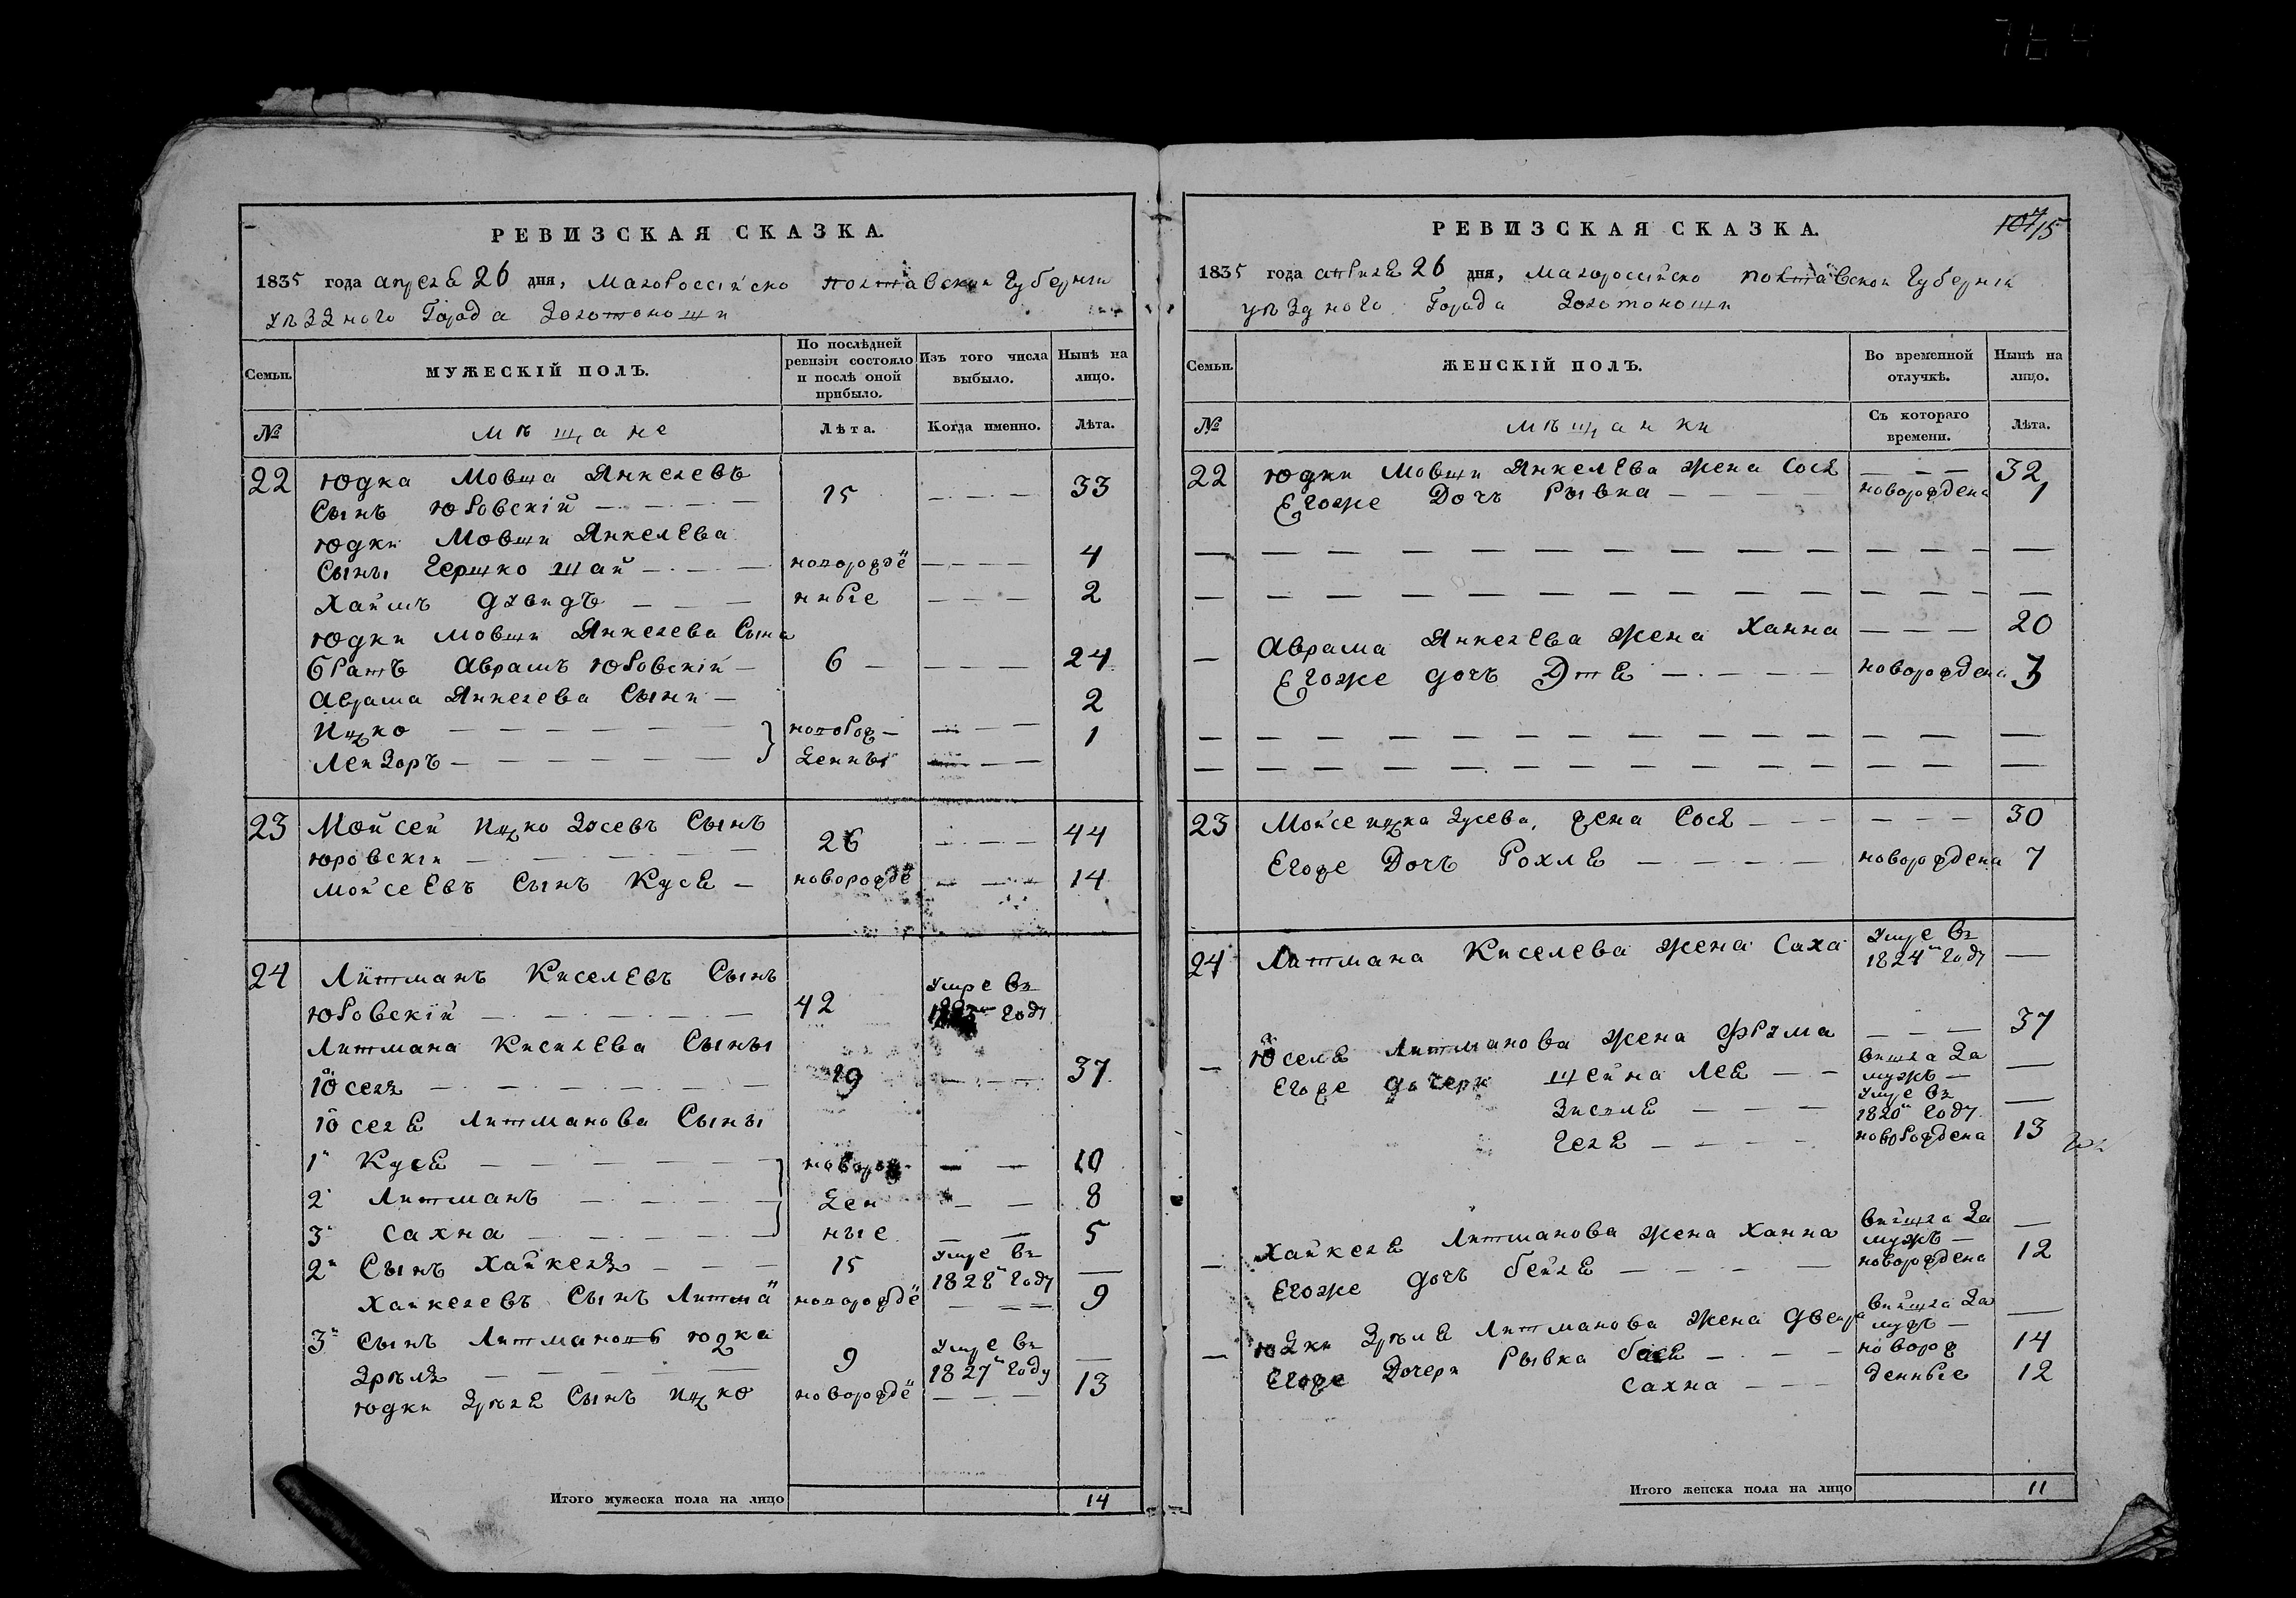 РЕВИЗСКАЯ СКАЗКА.
1835 года апреля 26 дня, Малороссійско полтавской Губерніи
уѣзднаго Города Золотоноши
Семьи.
МУЖЕСКІЙ ПОЛЪ.
По послѣдней ревизіи состояло и послѣ оной прибыло.
Изъ того числа выбыло.
Нынѣ на лицо.
№
мѣщане
Лѣта.
Когда именно.
Лѣта.
22 Юдка Мовша Янкелевъ
Сынъ Юровскій 15 33
Юдки Мовши Янкелева
Сыны Гершко Шай новорождё 4
Хаимъ Давидъ нные 2
Юдки Мовши Янкелева Сына
братъ Аврамъ Юровскій 6 24
Аврама Янкелева Сыни 2
Ицко новорож 1
Лейзоръ денны
23 Мойсей Ицко Зосевъ Сынъ 26 44
Юровскій
Мойсеевъ Сынъ Куся новорождё 14
24 Литманъ Киселевъ Сынъ
Юровскій 42 Умре въ году
Литмана Киселева Сыны
Іосель 19 37
Іоселя Литманова Сыны
1й Куся новорож 10
2й Литманъ ден 8
3й Сахна ные 5
2й Сынъ Хайкель 15 Умре въ 1828м году
Хайкелевъ Сынъ Литма новорождё 9
3й Сынъ Литмановъ Юдка
Зрѣль 9 Умре въ 1827м году
Юдки Зрѣля Сынъ Ицко новорождё 13
Итого мужеска пола на лицо 14
РЕВИЗСКАЯ СКАЗКА.
107/15
1835 года апреля 26 дня, Малороссійско полтавской Губерніи
уѣзднаго Города Золотоноши
Семьи.
ЖЕНСКІЙ ПОЛЪ.
Во временной отлучкѣ.
Нынѣ на лицо.
№
мѣщанки
Съ котораго времени.
Лѣта.
22 Юдки Мовши Янкелева жена Сося 32
Егоже Дочъ Рывка новорождена 1
Аврама Янкелева жена Ханна 20
Егоже дочъ Этя новорождена
23 Мойсе ицка Зусева, жена Сося 30
Егоже Дочъ Рохля новорождена 7
24 Литмана Киселева жена Саха Умре въ 1824м году
Іоселя Литманова жена Фрума 37
Егоже дочери Шейна Лея вишла за мужъ
Зиселя Умре въ 1820м году
Геля новорождена 13
Хайкеля Литманова жена Ханна вийшла за мужъ
Егоже дочъ бейля новорождена 12
Юдки Зрѣля Литманова жена Двейра вийшла за мужъ
Егоже Дочери Рывка бася новорож 14
Сахна денные 12
Итого женска пола на лицо 11